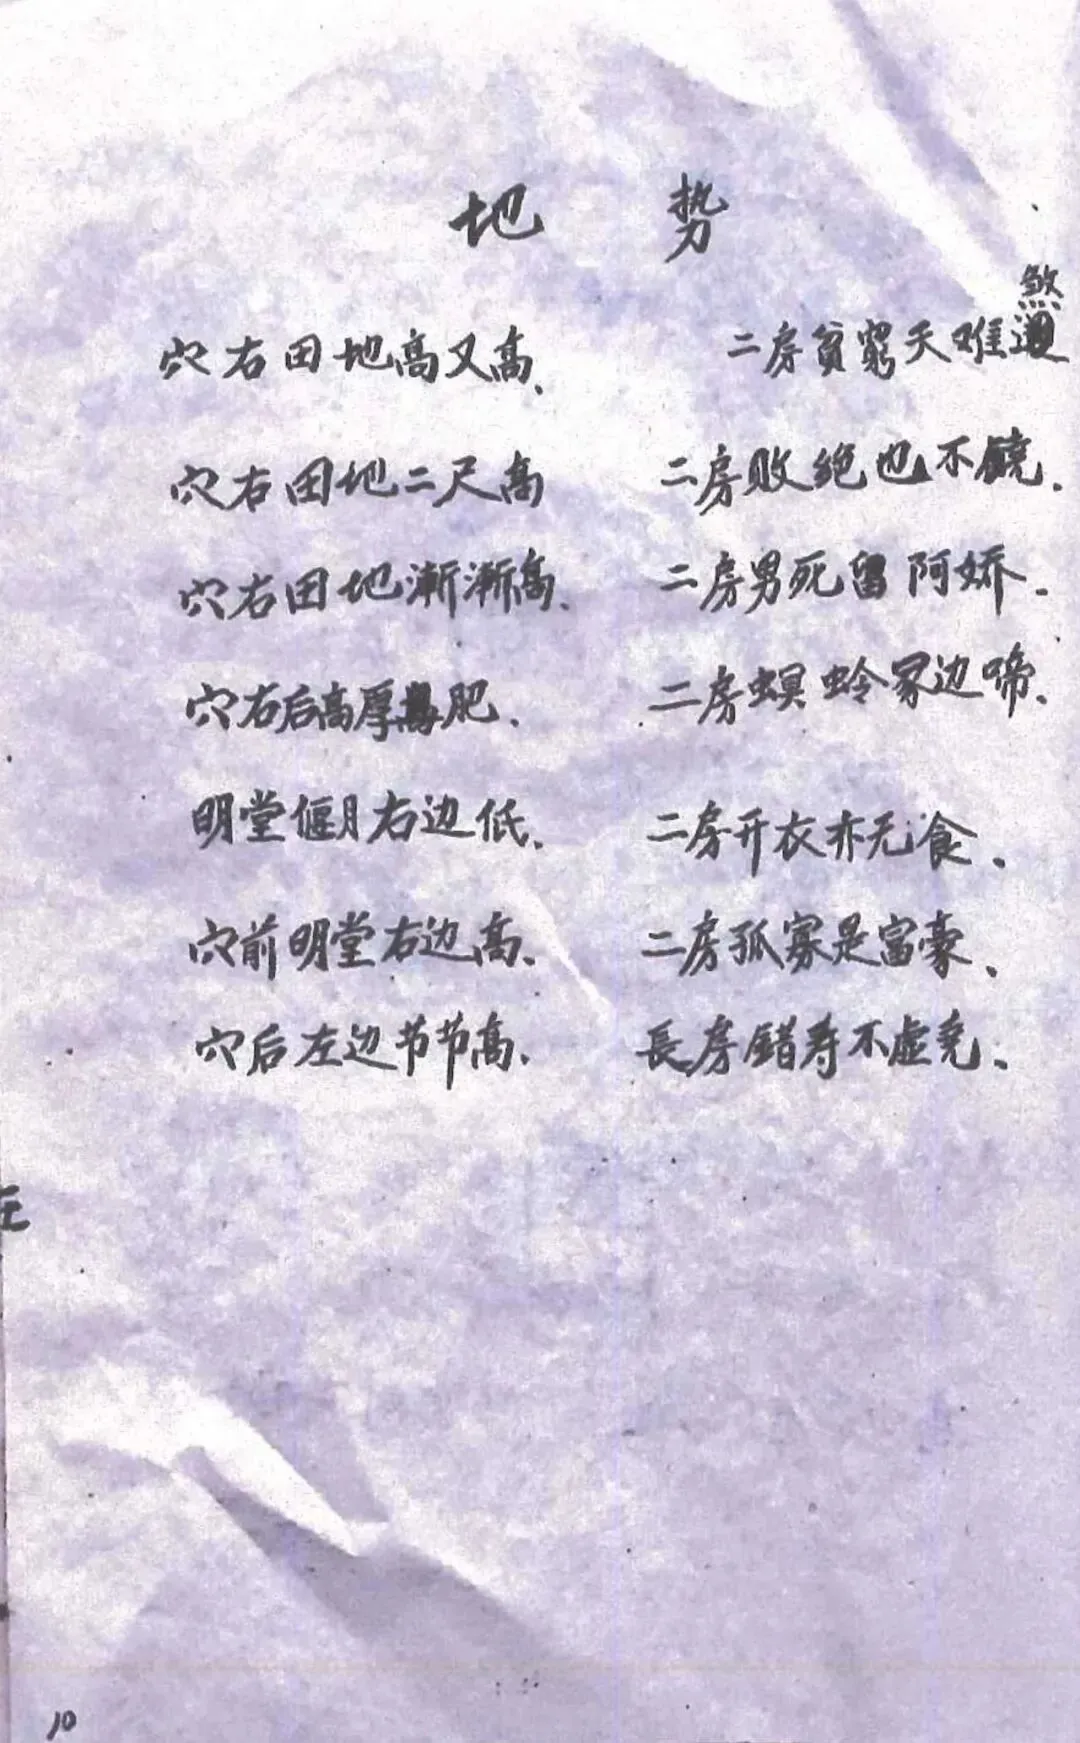 地 势
煞
穴右田地高又高、 二房贫窮天难
穴右田地二尺高 二房败绝也不饒.
穴右田地漸漸高、 二房男死留阿娇.
穴右后高厚肥、 二房螟蛉冢边啼、
明堂偃月右边低、 二房开衣亦无食、
穴前明堂右边高、 二房孤寡是富豪、
穴后左边节节高、 長房錯寿不虚尧、
10